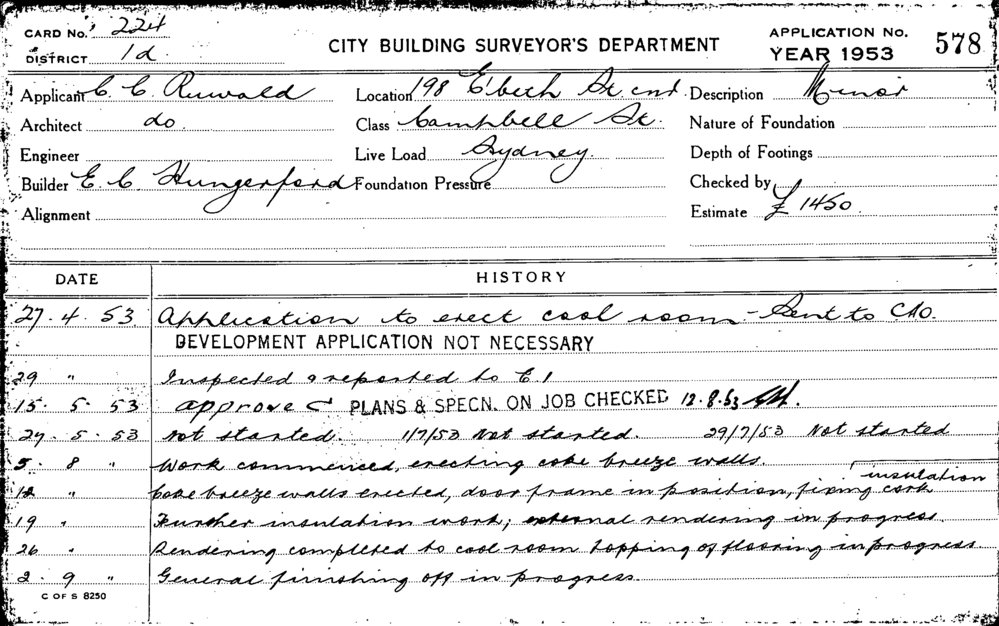 CARD No. 224
DISTRICT 1d.
CITY BUILDING SURVEYOR'S DEPARTMENT
APPLICATION No. 578
YEAR 1953
Applicant C. C. Ruwald Location 198 E'beth St cnr. Description Minor
Architect do. Class Campbell St. Nature of Foundation
Engineer Live Load Sydney. Depth of Footings
Builder E. C Hungerford Foundation Pressure Checked by
Alignment Estimate £ 1450
DATE HISTORY
27. 4. 53 Application to erect cool room - Sent to CAO.
DEVELOPMENT APPLICATION NOT NECESSARY
29 " Inspected & reported to E. 1
15. 5. 53 approved PLANS & SPECN. ON JOB CHECKED 12.8.53
27. 5. 53 Not started. 1/7/53 Not started. 29/7/53 Not started
5. 8 " Work commenced, erecting coke breeze walls.
12 " Coke breeze walls erected, door frame in position, fixing cork insulation
19 " Further insulation work; external rendering in progress.
26 " Rendering completed to cool room topping of flooring in progress
2. 9 " General finishing off in progress.
C OF S 8250